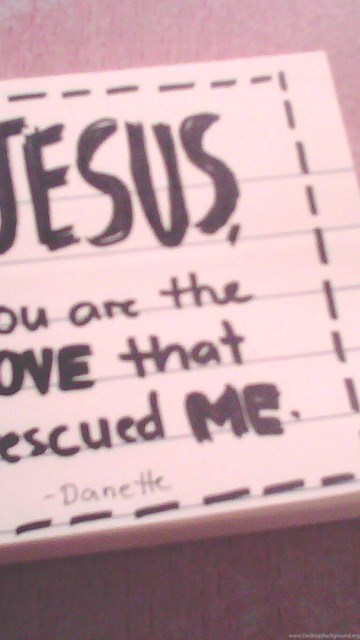 JESUS,
ou are the
OVE that
escued ME.
-Danette
www.DesktopBackground.org